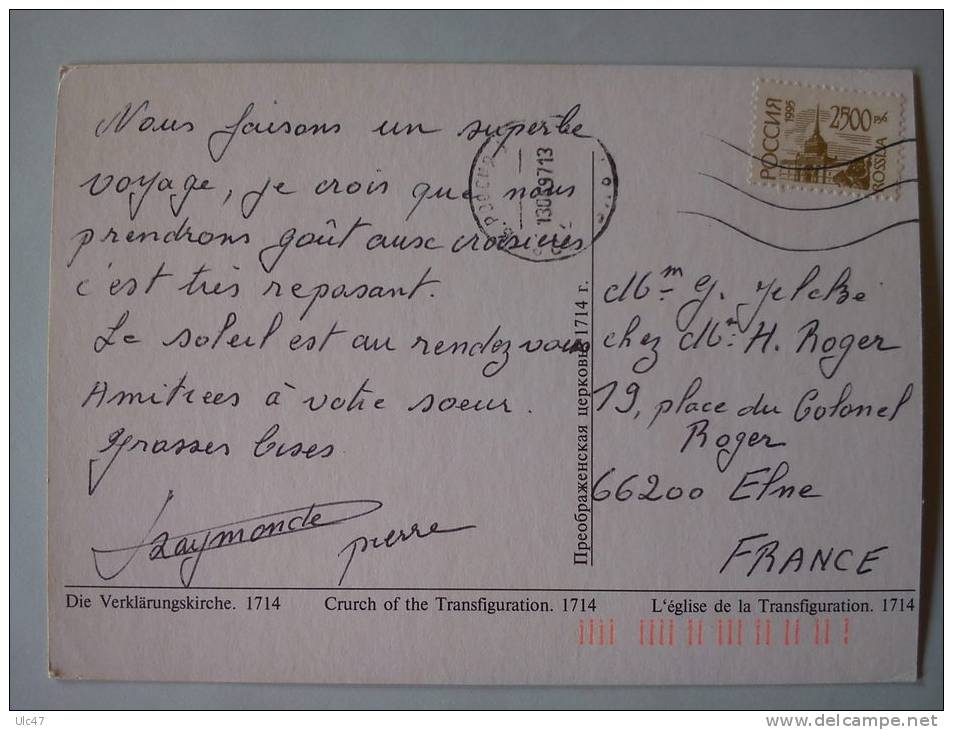 Nous faisons un superbe
voyage, je crois que nous
prendrons goût aux croisieres
c'est très reposant.
Le soleil est au rendez vous
Amitiees à votre soeur.
Grosses bises
Raymonde
pierre
РОССИЯ
1995
2500 руб
ROSSIJA
13069713
Mme G.
chez Mr. H. Roger
19, place du Colonel
Roger
66200 Elne
FRANCE
Преображенская церковь. 1714 г.
Die Verklärungskirche. 1714 Crurch of the Transfiguration. 1714 L'église de la Transfiguration. 1714
Ulc47
www.delcampe.net